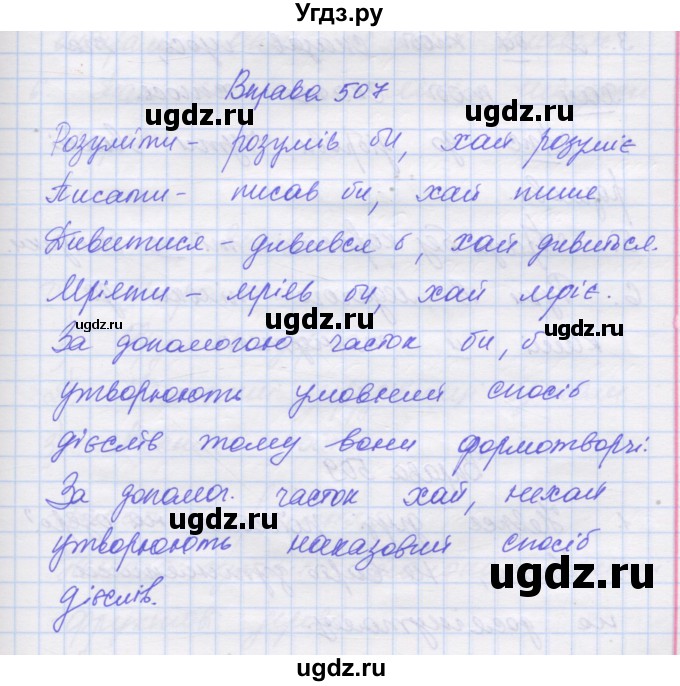 Угдз.ру
Вправа 507
ugdz.ru
Розуміти - розумів би, хай розуміє
ugdz.ru
Писати - писав би, хай пише
Дивитися - дивився б, хай дивиться.
Мріяти - мріяв би, хай мріє.
ugdz.ru ugdz.ru ugdz.ru
За допомогою часток би, б
утворюють умовний спосіб
дієслів тому вони формотворчі.
За допомог. часток хай, нехай
ugdz.ru
утворюють наказовий спосіб
ugdz.ru
дієслів.
ugdz.ru